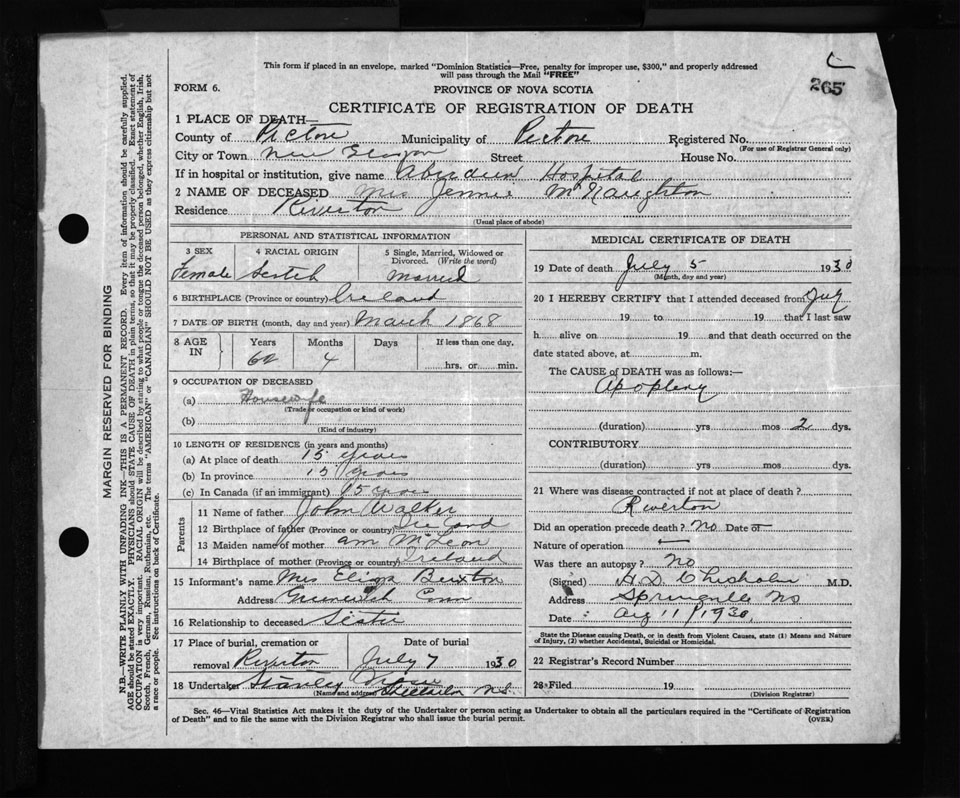 This form if placed in an envelope, marked "Dominion Statistics—Free, penalty for improper use, $300," and properly addressed
will pass through the Mail "FREE"
265
FORM 6.
PROVINCE OF NOVA SCOTIA
CERTIFICATE OF REGISTRATION OF DEATH
1 PLACE OF DEATH—
County of Pictou Municipality of Pictou Registered No.
(For use of Registrar General only)
City or Town New Glasgow Street House No.
If in hospital or institution, give name Aberdeen Hospital
2 NAME OF DECEASED Mrs Jennie McNaughton
Residence Riverton
(Usual place of abode)
PERSONAL AND STATISTICAL INFORMATION
3 SEX 4 RACIAL ORIGIN 5 Single, Married, Widowed or
Divorced. (Write the word)
Female Scotch Married
6 BIRTHPLACE (Province or country) Ireland
7 DATE OF BIRTH (month, day and year) March 1868
8 AGE IN Years Months Days If less than one day,
62 4 hrs. or min.
9 OCCUPATION OF DECEASED
(a) Housewife
(Trade or occupation or kind of work)
(b)
(Kind of industry)
10 LENGTH OF RESIDENCE (in years and months)
(a) At place of death 15 years
(b) In province 15 years
(c) In Canada (if an immigrant) 15 years
Parents
11 Name of father John Walker
12 Birthplace of father (Province or country) Ireland
13 Maiden name of mother McLeon
14 Birthplace of mother (Province or country) Ireland
15 Informant's name Mrs Eliza Buxton
Address Greenwich Conn
16 Relationship to deceased Sister
17 Place of burial, cremation or Date of burial
removal Riverton July 7 1930
18 Undertaker Stanley
(Name and address) N.S.
MEDICAL CERTIFICATE OF DEATH
19 Date of death July 5 1930
(Month, day and year)
20 I HEREBY CERTIFY that I attended deceased from July
19 to 19 that I last saw
h alive on 19 and that death occurred on the
date stated above, at m.
The CAUSE of DEATH was as follows:—
Apoplexy
(duration) yrs mos 2 dys.
CONTRIBUTORY
(duration) yrs mos dys.
21 Where was disease contracted if not at place of death?
Riverton
Did an operation precede death? No Date of
Nature of operation
Was there an autopsy? No
(Signed) H.D. Chisholm M.D.
Address Springville NS
Date Aug 11/1930.
State the Disease causing Death, or in death from Violent Causes, state (1) Means and Nature
of Injury, (2) whether Accidental, Suicidal or Homicidal.
22 Registrar's Record Number
23 Filed 19
(Division Registrar)
Sec. 46—Vital Statistics Act makes it the duty of the Undertaker or person acting as Undertaker to obtain all the particulars required in the "Certificate of Registration
of Death" and to file the same with the Division Registrar who shall issue the burial permit. (OVER)
MARGIN RESERVED FOR BINDING
N.B.—WRITE PLAINLY WITH UNFADING INK—THIS IS A PERMANENT RECORD. Every item of information should be carefully supplied.
AGE should be stated EXACTLY. PHYSICIANS should STATE CAUSE OF DEATH in plain terms, so that it may be properly classified. Exact statement of
OCCUPATION is very important. RACIAL ORIGIN will be described by stating to what people or tongue the deceased person belonged, whether English, Irish,
Scotch, French, German, Russian, Ruthenian, etc. The terms "AMERICAN" or "CANADIAN" SHOULD NOT BE USED as they express citizenship but not
a race or people. See instructions on back of Certificate.